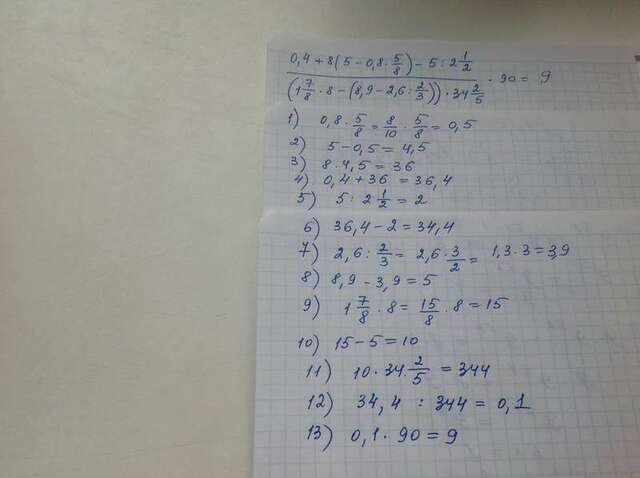 0,4+8(5-0,8·5/8)-5:2 1/2
(1 7/8·8-(8,9-2,6:2/3))·34 2/5 ·90= 9
1) 0,8·5/8=8/10·5/8=0,5
2) 5-0,5=4,5
3) 8·4,5=36
4) 0,4+36=36,4
5) 5:2 1/2=2
6) 36,4-2=34,4
7) 2,6:2/3=2,6·3/2=1,3·3=3,9
8) 8,9-3,9=5
9) 1 7/8·8=15/8·8=15
10) 15-5=10
11) 10·34 2/5=344
12) 34,4:344=0,1
13) 0,1·90=9